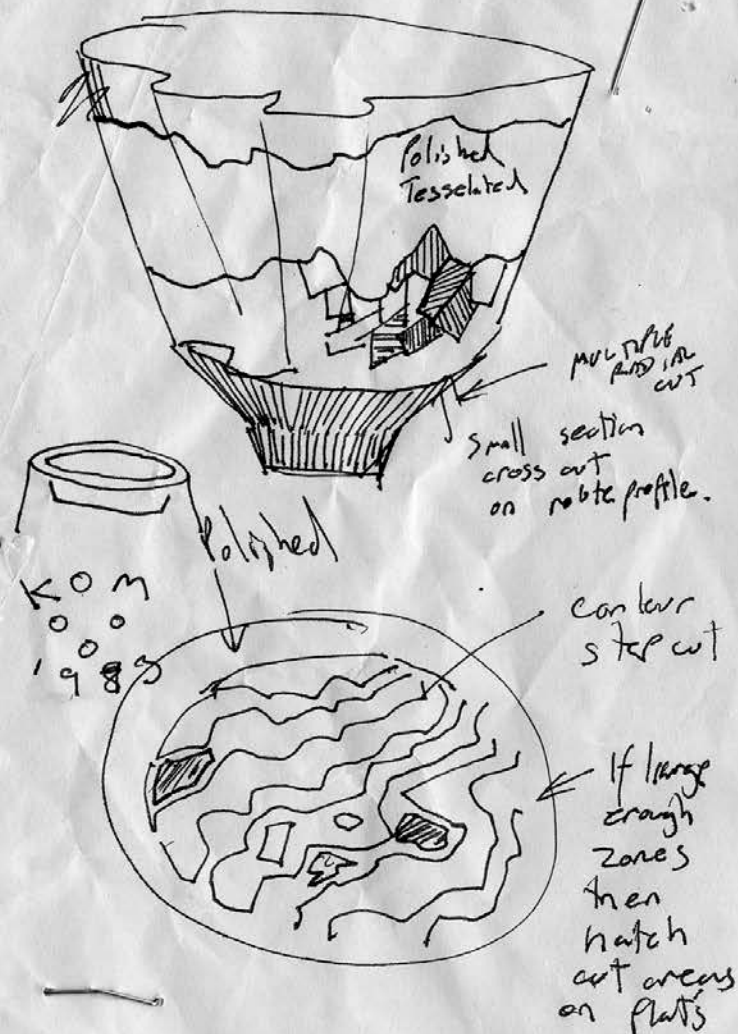 Polished
Tesselated
MULTIPLE
RADIAL
CUT
small section
cross cut
on
Polished
contour
step cut
If large
enough
zones
then
hatch
cut areas
on flats